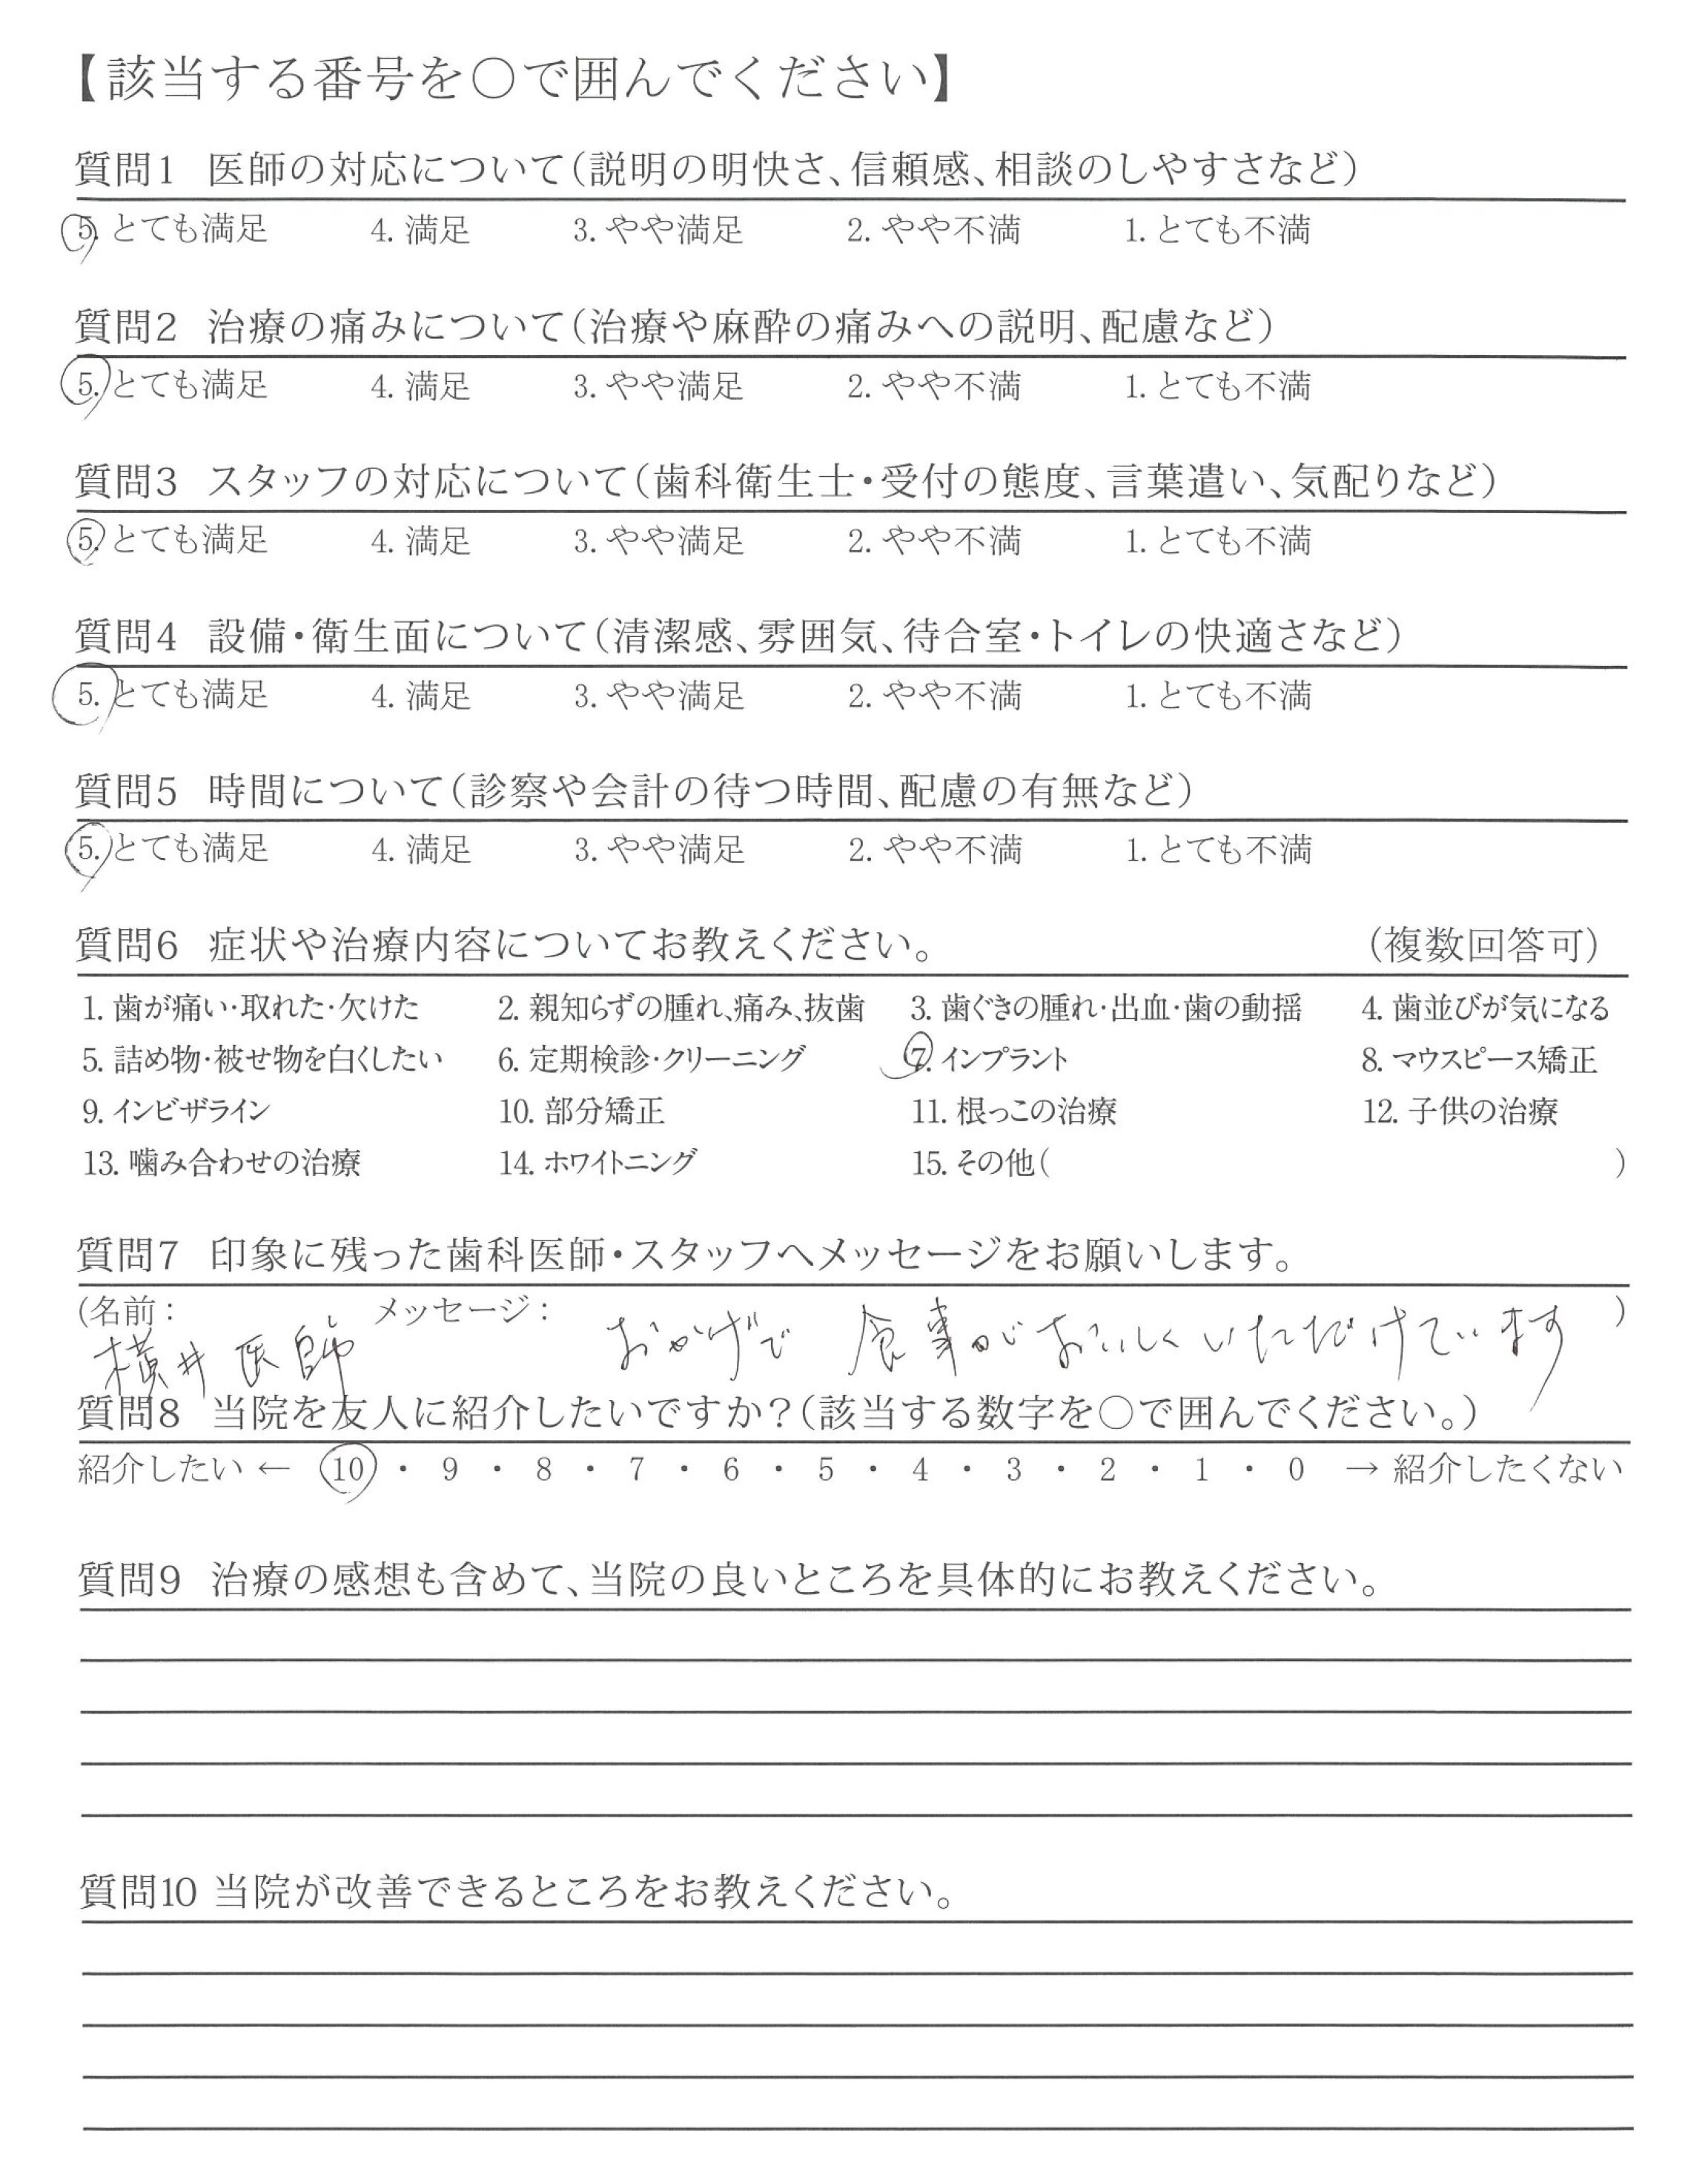 【該当する番号を○で囲んでください】
質問1 医師の対応について(説明の明快さ、信頼感、相談のしやすさなど)
5. とても満足 4. 満足 3. やや満足 2. やや不満 1. とても不満
質問2 治療の痛みについて(治療や麻酔の痛みへの説明、配慮など)
5. とても満足 4. 満足 3. やや満足 2. やや不満 1. とても不満
質問3 スタッフの対応について(歯科衛生士・受付の態度、言葉遣い、気配りなど)
5. とても満足 4. 満足 3. やや満足 2. やや不満 1. とても不満
質問4 設備・衛生面について(清潔感、雰囲気、待合室・トイレの快適さなど)
5. とても満足 4. 満足 3. やや満足 2. やや不満 1. とても不満
質問5 時間について(診察や会計の待つ時間、配慮の有無など)
5. とても満足 4. 満足 3. やや満足 2. やや不満 1. とても不満
質問6 症状や治療内容についてお教えください。 (複数回答可)
1. 歯が痛い・取れた・欠けた 2. 親知らずの腫れ、痛み、抜歯 3. 歯ぐきの腫れ・出血・歯の動揺 4. 歯並びが気になる
5. 詰め物・被せ物を白くしたい 6. 定期検診・クリーニング 7. インプラント 8. マウスピース矯正
9. インビザライン 10. 部分矯正 11. 根っこの治療 12. 子供の治療
13. 噛み合わせの治療 14. ホワイトニング 15. その他( )
質問7 印象に残った歯科医師・スタッフへメッセージをお願いします。
(名前: メッセージ: )
横井医師 おかげで 食事がおいしくいただけています
質問8 当院を友人に紹介したいですか?(該当する数字を○で囲んでください。)
紹介したい ← 10 ・ 9 ・ 8 ・ 7 ・ 6 ・ 5 ・ 4 ・ 3 ・ 2 ・ 1 ・ 0 → 紹介したくない
質問9 治療の感想も含めて、当院の良いところを具体的にお教えください。
質問10 当院が改善できるところをお教えください。